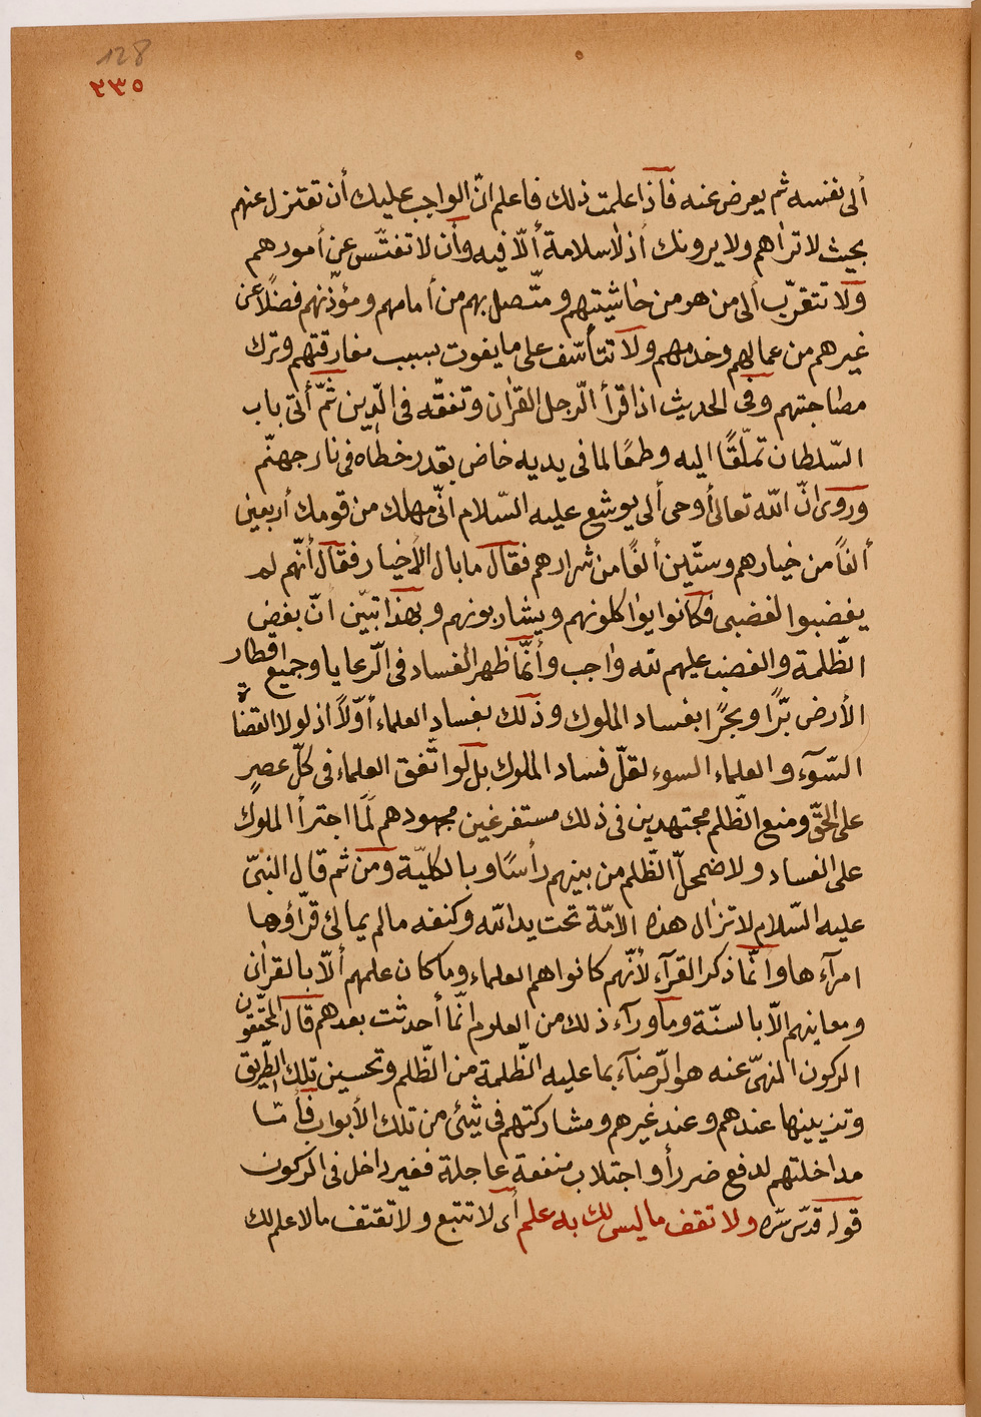 128
٢٣٥
ألى نفسه ثم يعرض عنه فأذا علمت ذلك فاعلم انّ الواجب عليك أن تعتزل عنهم
بحيث لا تراهم ولا يرونك أذ لا سلامة ألّا فيه وأن لا تفتّس عن أمورهم
ولا تتقرّب ألى من هو من حاشيتهم ومتّصل بهم من أمامهم ومؤذّنهم فضلًا عن
غيرهم من عمالهم وخدمهم ولا تتأسّف على ما يفوت بسبب مفارقتهم وترك
مصاحبتهم وفى الحديث اذا قرأ الّرجل القرأن وتفقّه فى الدّين ثمّ أتى باب
السّلطان تملّقًا اليه وطمعًا لما فى يديه خاض بقدر خطاه فى نار جهنّم
وروى انّ اللّه تعالى أوحى ألى يوشع عليه السّلام انّى مهلك من قومك أربعين
ألفاً من خيارهم وستّين ألفًا من شرارهم فقال ما بال الأخيار فقال أنّهم لم
يغضبوا لغضبى فكانوا يؤاكلونهم ويشاربونهم وبهذا تبيّن انّ بغض
الظّلمة والغضب عليهم للّه واجب وأنّما ظهر الفساد فى الّرعايا وجميع اقطار
الأرض برًّا وبحرًا بفساد الملوك وذلك بفساد العلماء أوّلاً اذ لولا القضاة
السّوء والعلماء السوء لقلّ فساد الملوك بل لو اتّفق العلماء فى كلّ عصرٍ
على الحقّ ومنع الظّلم مجتهدين فى ذلك مستفرغين مجهودهم لَمَا اجترأ الملوك
على الفساد ولاضمحلّ الظّلم من بينهم رأسًا وبالكليّة ومن ثم قال النبىّ
عليه السّلام لا تزال هذه الامّة تحت يد اللّه وكنفه ما لم يمالى قرّاؤها
امرآءها وانّما ذكر القرآء لأنّهم كانوا هم العلماء وما كان علمهم ألّا بالقرأن
ومعانيهم الّا بالسنّة وما ورآء ذلك من العلوم انّما أحدثت بعدهم قال المحّققون
الركون المنهىّ عنه هو الّرضاء بما عليه الظّلمة من الظّلم وتحسين تلك الطّريق
وتزيينها عندهم وعند غيرهم ومشاركتهم فى شئ من تلك الأبواب فأمّا
مداخلتهم لدفع ضرر أو اجتلاب منفعة عاجلة فغير داخل فى الركون
قوله قدّس سّره ولا تقف ما ليس لك به علم أى لا تتبع ولا تقتف ما لا علم لك